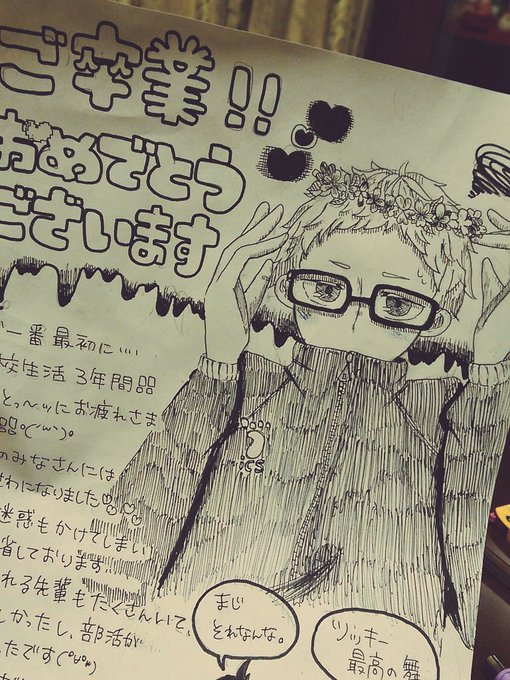 ご卒業!!
おめでとう
ございます
一番最初に….
校生活3年間
とっっ〜ッにお疲れさま
(・ω・)。
のみなさんには
せわになりました
迷惑もかけてしまい
省しております…
れる先輩もたくさんいて、
しかったし、部活が
ったです(°∀°*)
CS
まじ
それなんな。
ツッキー
最高の舞